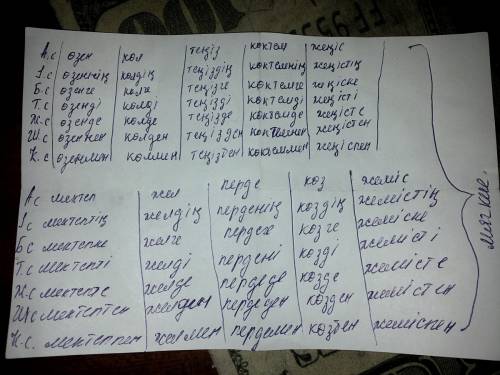 А.с өзен көл теңіз көктем жеңіс
І.с өзеннің көлдің теңіздің көктемнің жеңістің
Б.с өзенге көлге теңізге көктемге жеңіске
Т.с өзенді көлді теңізді көктемді жеңісті
Ж.с өзенде көлде теңізде көктемде жеңісте
Ш.с өзеннен көлден теңізден көктемнен жеңістен
К.с өзенмен көлмен теңізбен көктеммен жеңіспен
Ас мектеп жел перде көз жеміс
Іс мектептің желдің перденің көздің жемістің
Бс мектепке желге пердеге көзге жеміске
Т.с мектепті желді пердені көзді жемісті
Ж.с мектепте желде пердеде көзде жемісте
Шс мектептен желден пердеден көзден жемістен
К.с. мектеппен желмен пердемен көзбен жеміспен
мягкие.